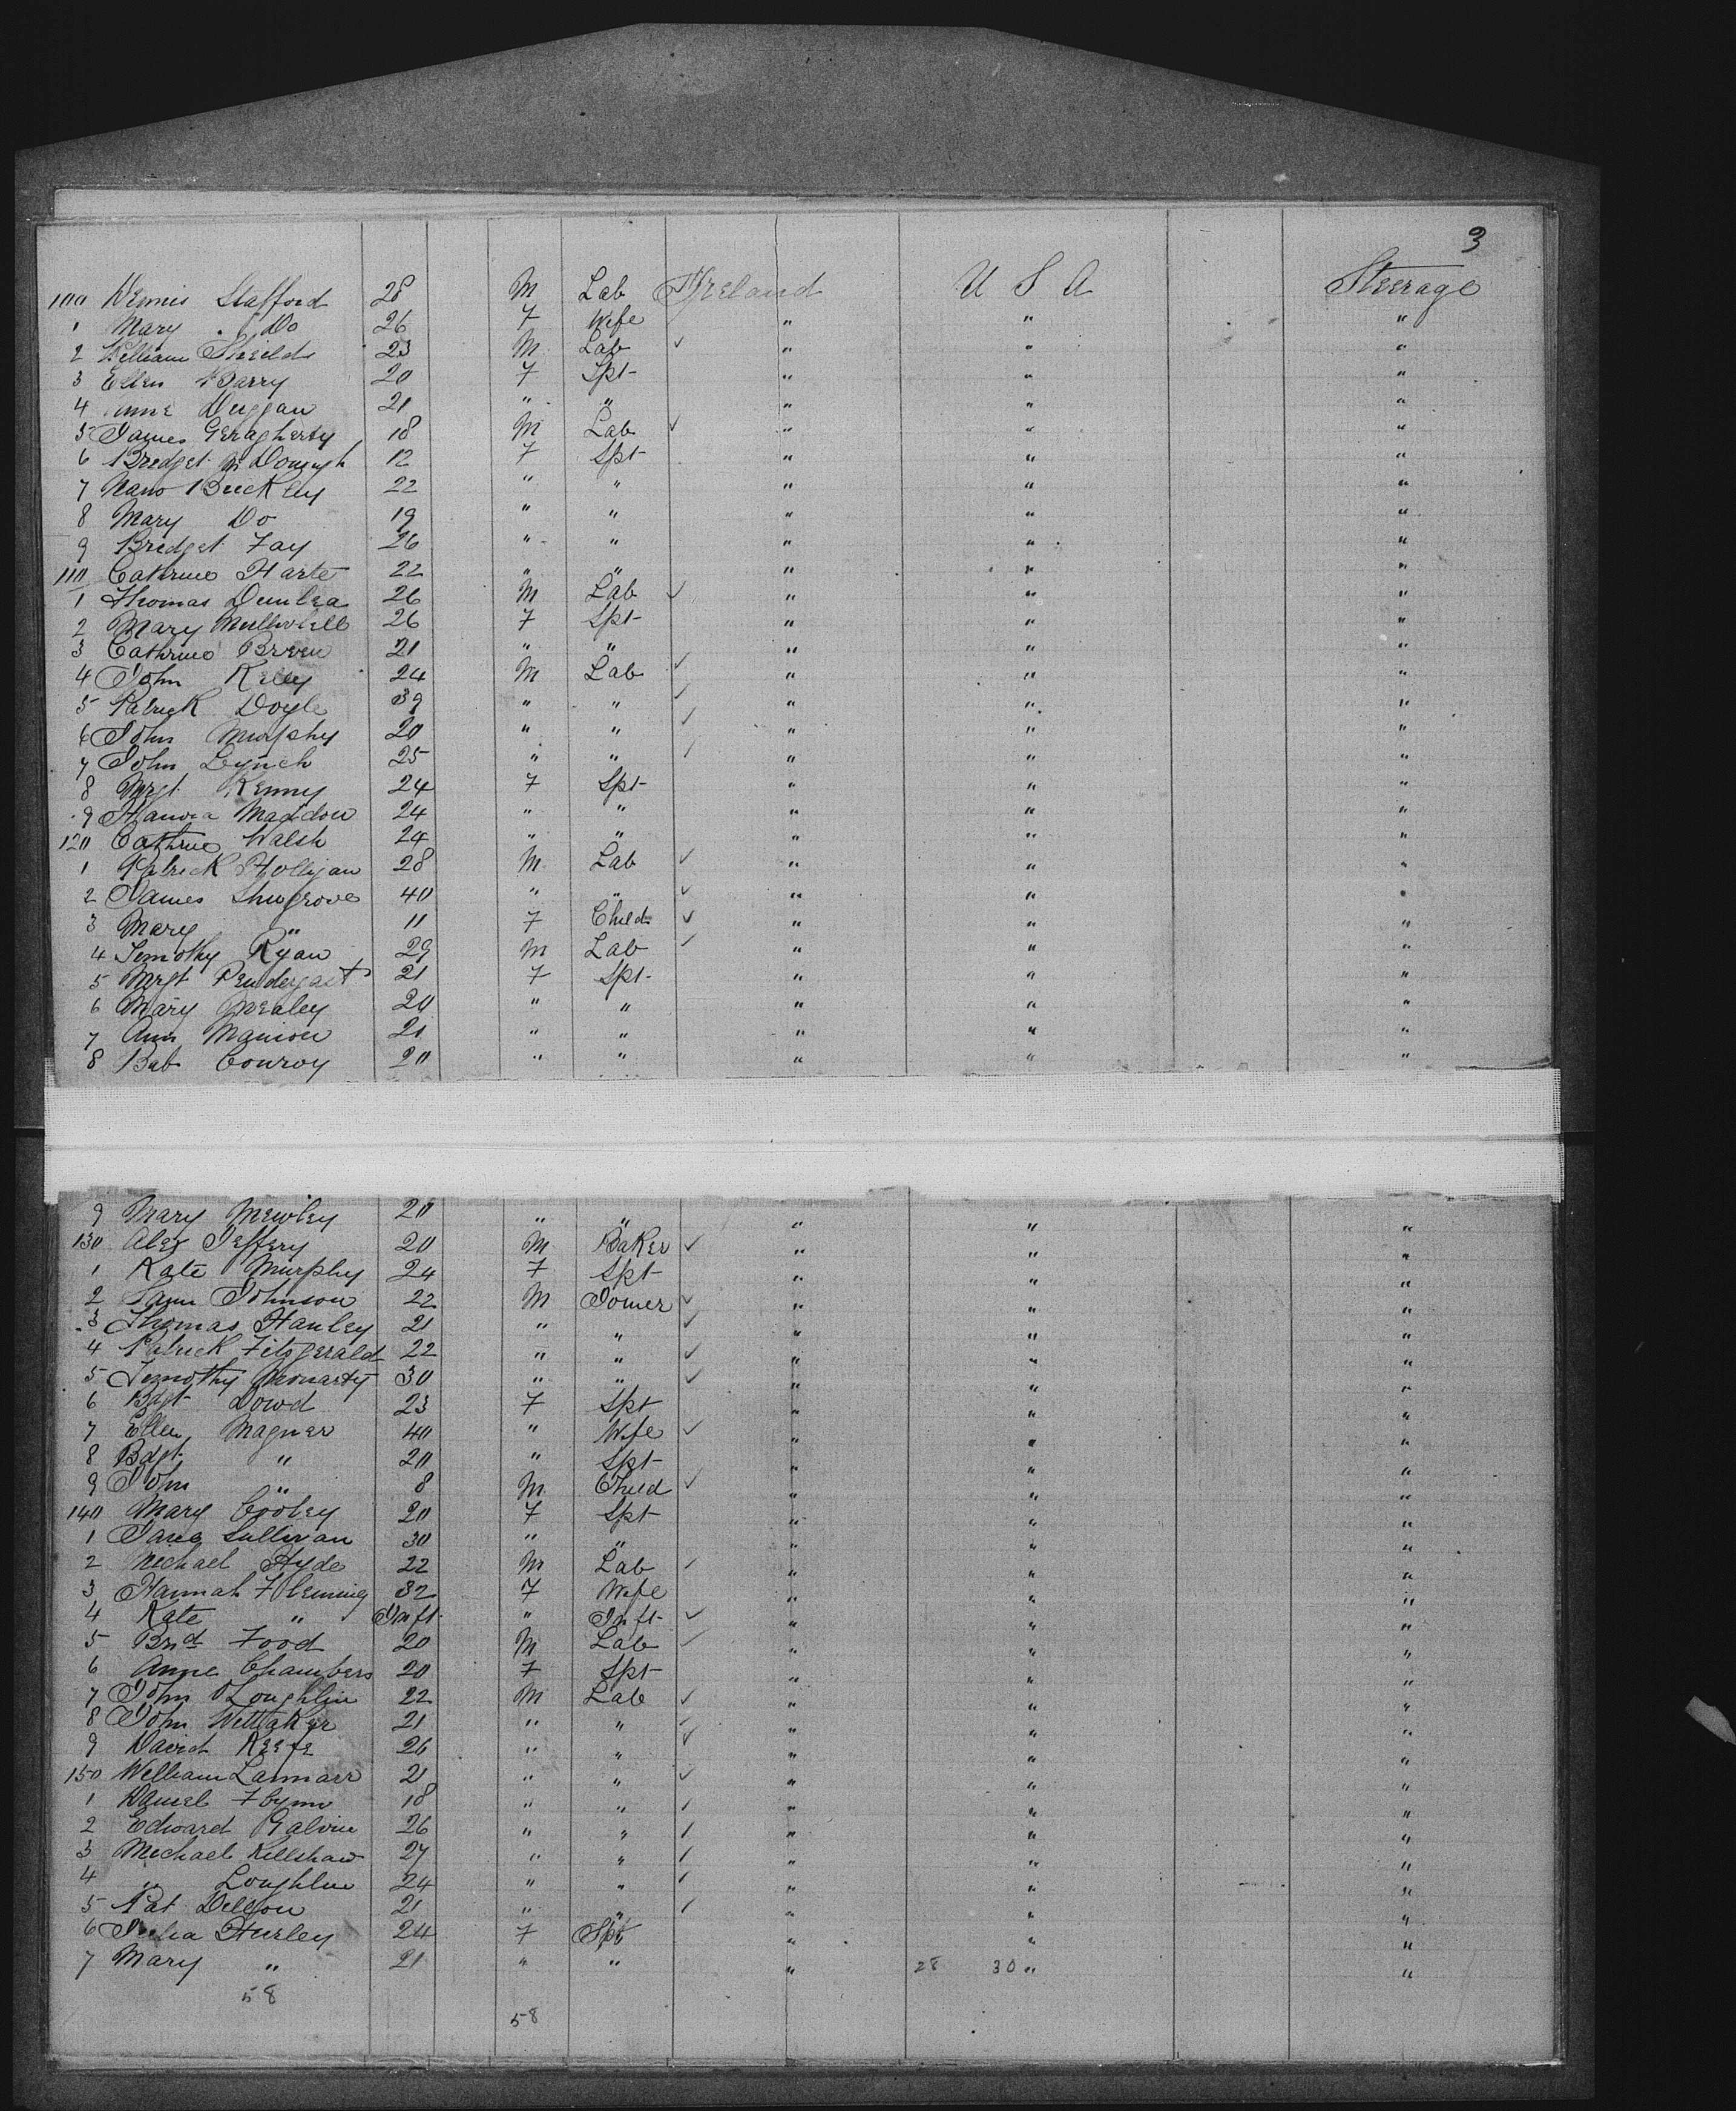 3
100 Dennis Stafford 28 M Lab Ireland U S A Steerage
1 Mary Do 26 F Wife " " "
2 William Shields 23 M Lab ✓ " " "
3 Ellen Barry 20 F Spt " " "
4 Anne Duggan 21 " " " " "
5 James Geragherty 18 M Lab ✓ " " "
6 Bridget McDonagh 12 F Spt " " "
7 Nano Buckley 22 " " " " "
8 Mary Do 19 " " " " "
9 Bridget Fay 26 " " " " "
110 Cathrine Harte 22 " " " " "
1 Thomas Dunlea 26 M Lab ✓ " " "
2 Mary 26 F Spt " " "
3 Cathrine Breen 21 " " " " "
4 John Kelly 24 M Lab ✓ " " "
5 Patrick Doyle 39 " " ✓ " " "
6 John Murphy 20 " " ✓ " " "
7 John Lynch 25 " " ✓ " " "
8 Mrgt Kenny 24 F Spt " " "
9 Hanora 24 " " " " "
120 Cathrine Walsh 24 " " " " "
1 Patrick Holligan 28 M Lab ✓ " " "
2 James Shugrove 40 " " ✓ " " "
3 Mary " 11 F Child ✓ " " "
4 Timothy Ryan 29 M Lab ✓ " " "
5 Mrgt Pendergast 21 F Spt " " "
6 Mary Mealey 20 " " " " "
7 Ann Manion 21 " " " " "
8 Bab Conroy 20 " " " " "
9 Mary Mewley 20 " " " " "
130 Alex Jeffery 20 M Baker ✓ " " "
1 Kate Murphy 24 F Spt " " "
2 Johnson 22 M Joiner ✓ " " "
3 Thomas Hanley 21 " " ✓ " " "
4 Patrick Fitzgerald 22 " " ✓ " " "
5 Timothy Moriarty 30 " " ✓ " " "
6 Bdgt Dowd 23 F Spt " " "
7 Ellen Magner 40 " Wife ✓ " " "
8 Bdgt " 20 " Spt " " "
9 John " 8 M Child ✓ " " "
140 Mary Cooley 20 F Spt " " "
1 Jane Sullivan 30 " " " " "
2 Michael Hyde 22 M Lab ✓ " " "
3 Hannah Fleming 32 F Wife " " "
4 Kate " Inft " Inft ✓ " " "
5 Brid Food 20 M Lab ✓ " " "
6 Anne Chambers 20 F Spt " " "
7 John OLoughlin 22 M Lab ✓ " " "
8 John Wittaker 21 " " ✓ " " "
9 David Keefe 26 " " ✓ " " "
150 William Lannarr 21 " " ✓ " " "
1 Daniel Flynn 18 " " ✓ " " "
2 Edward Galvin 26 " " ✓ " " "
3 Michael Killshaw 27 " " ✓ " " "
4 " Loughlin 24 " " ✓ " " "
5 Pat Dillon 21 " " ✓ " " "
6 Julia Hurley 24 F Spt " " "
7 Mary " 21 " " " 28 30 " "
58
58